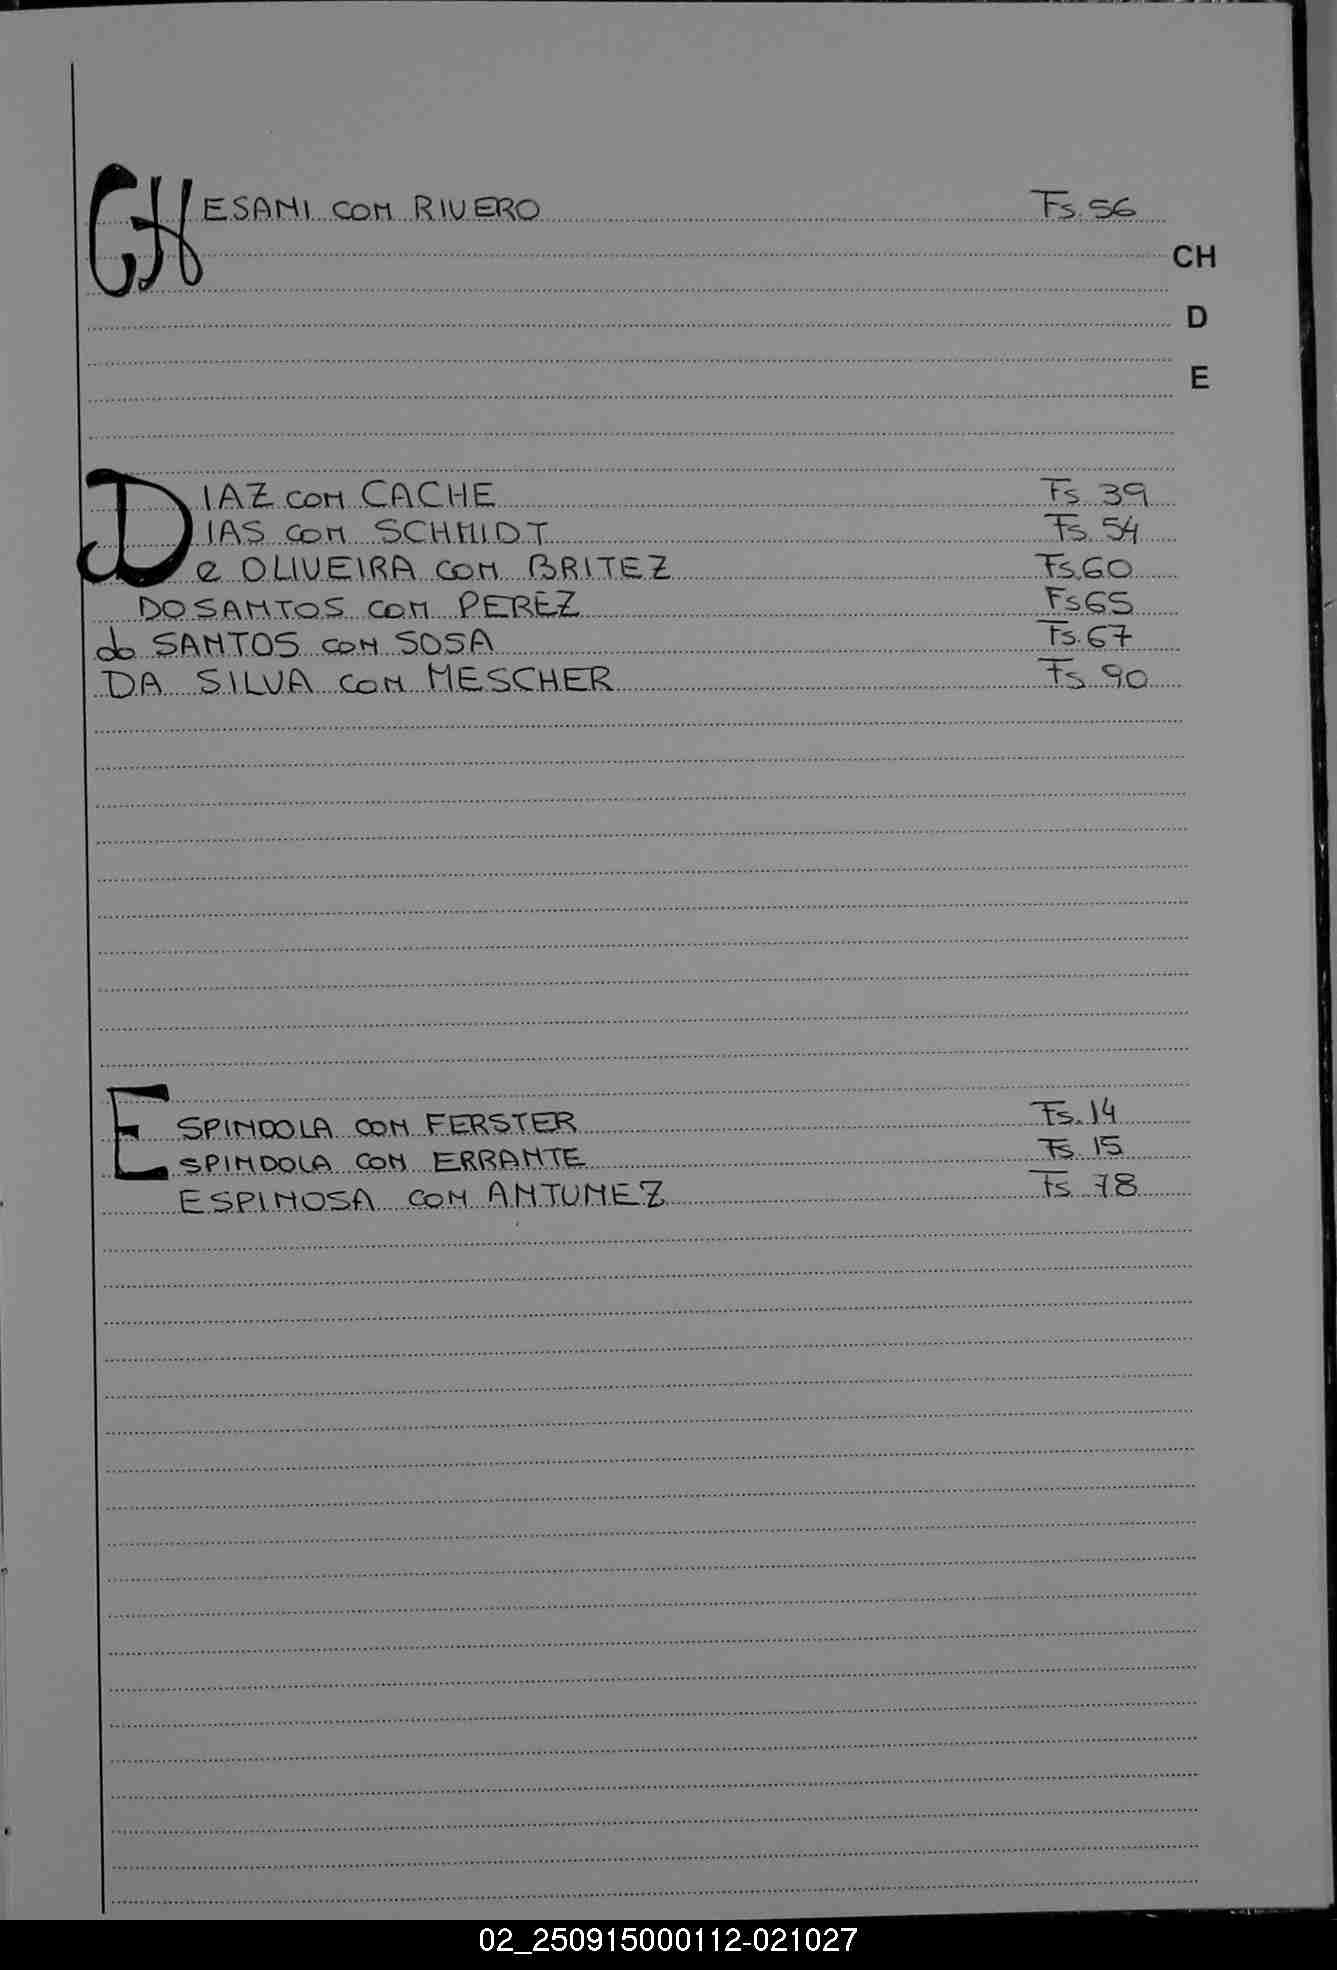 CHESANI con RIVERO Fs. 56
CH
D
E
DIAZ con CACHE Fs. 39
DIAS con SCHMIDT Fs. 54
De OLIVEIRA con BRITEZ Fs. 60
DO SANTOS con PEREZ Fs 65
do SANTOS con SOSA Fs. 67
DA SILVA con MESCHER Fs. 90
ESPINDOLA con FERSTER Fs. 14
ESPINDOLA con ERRANTE Fs. 15
ESPINOSA con ANTUNEZ Fs. 78
02_250915000112-021027